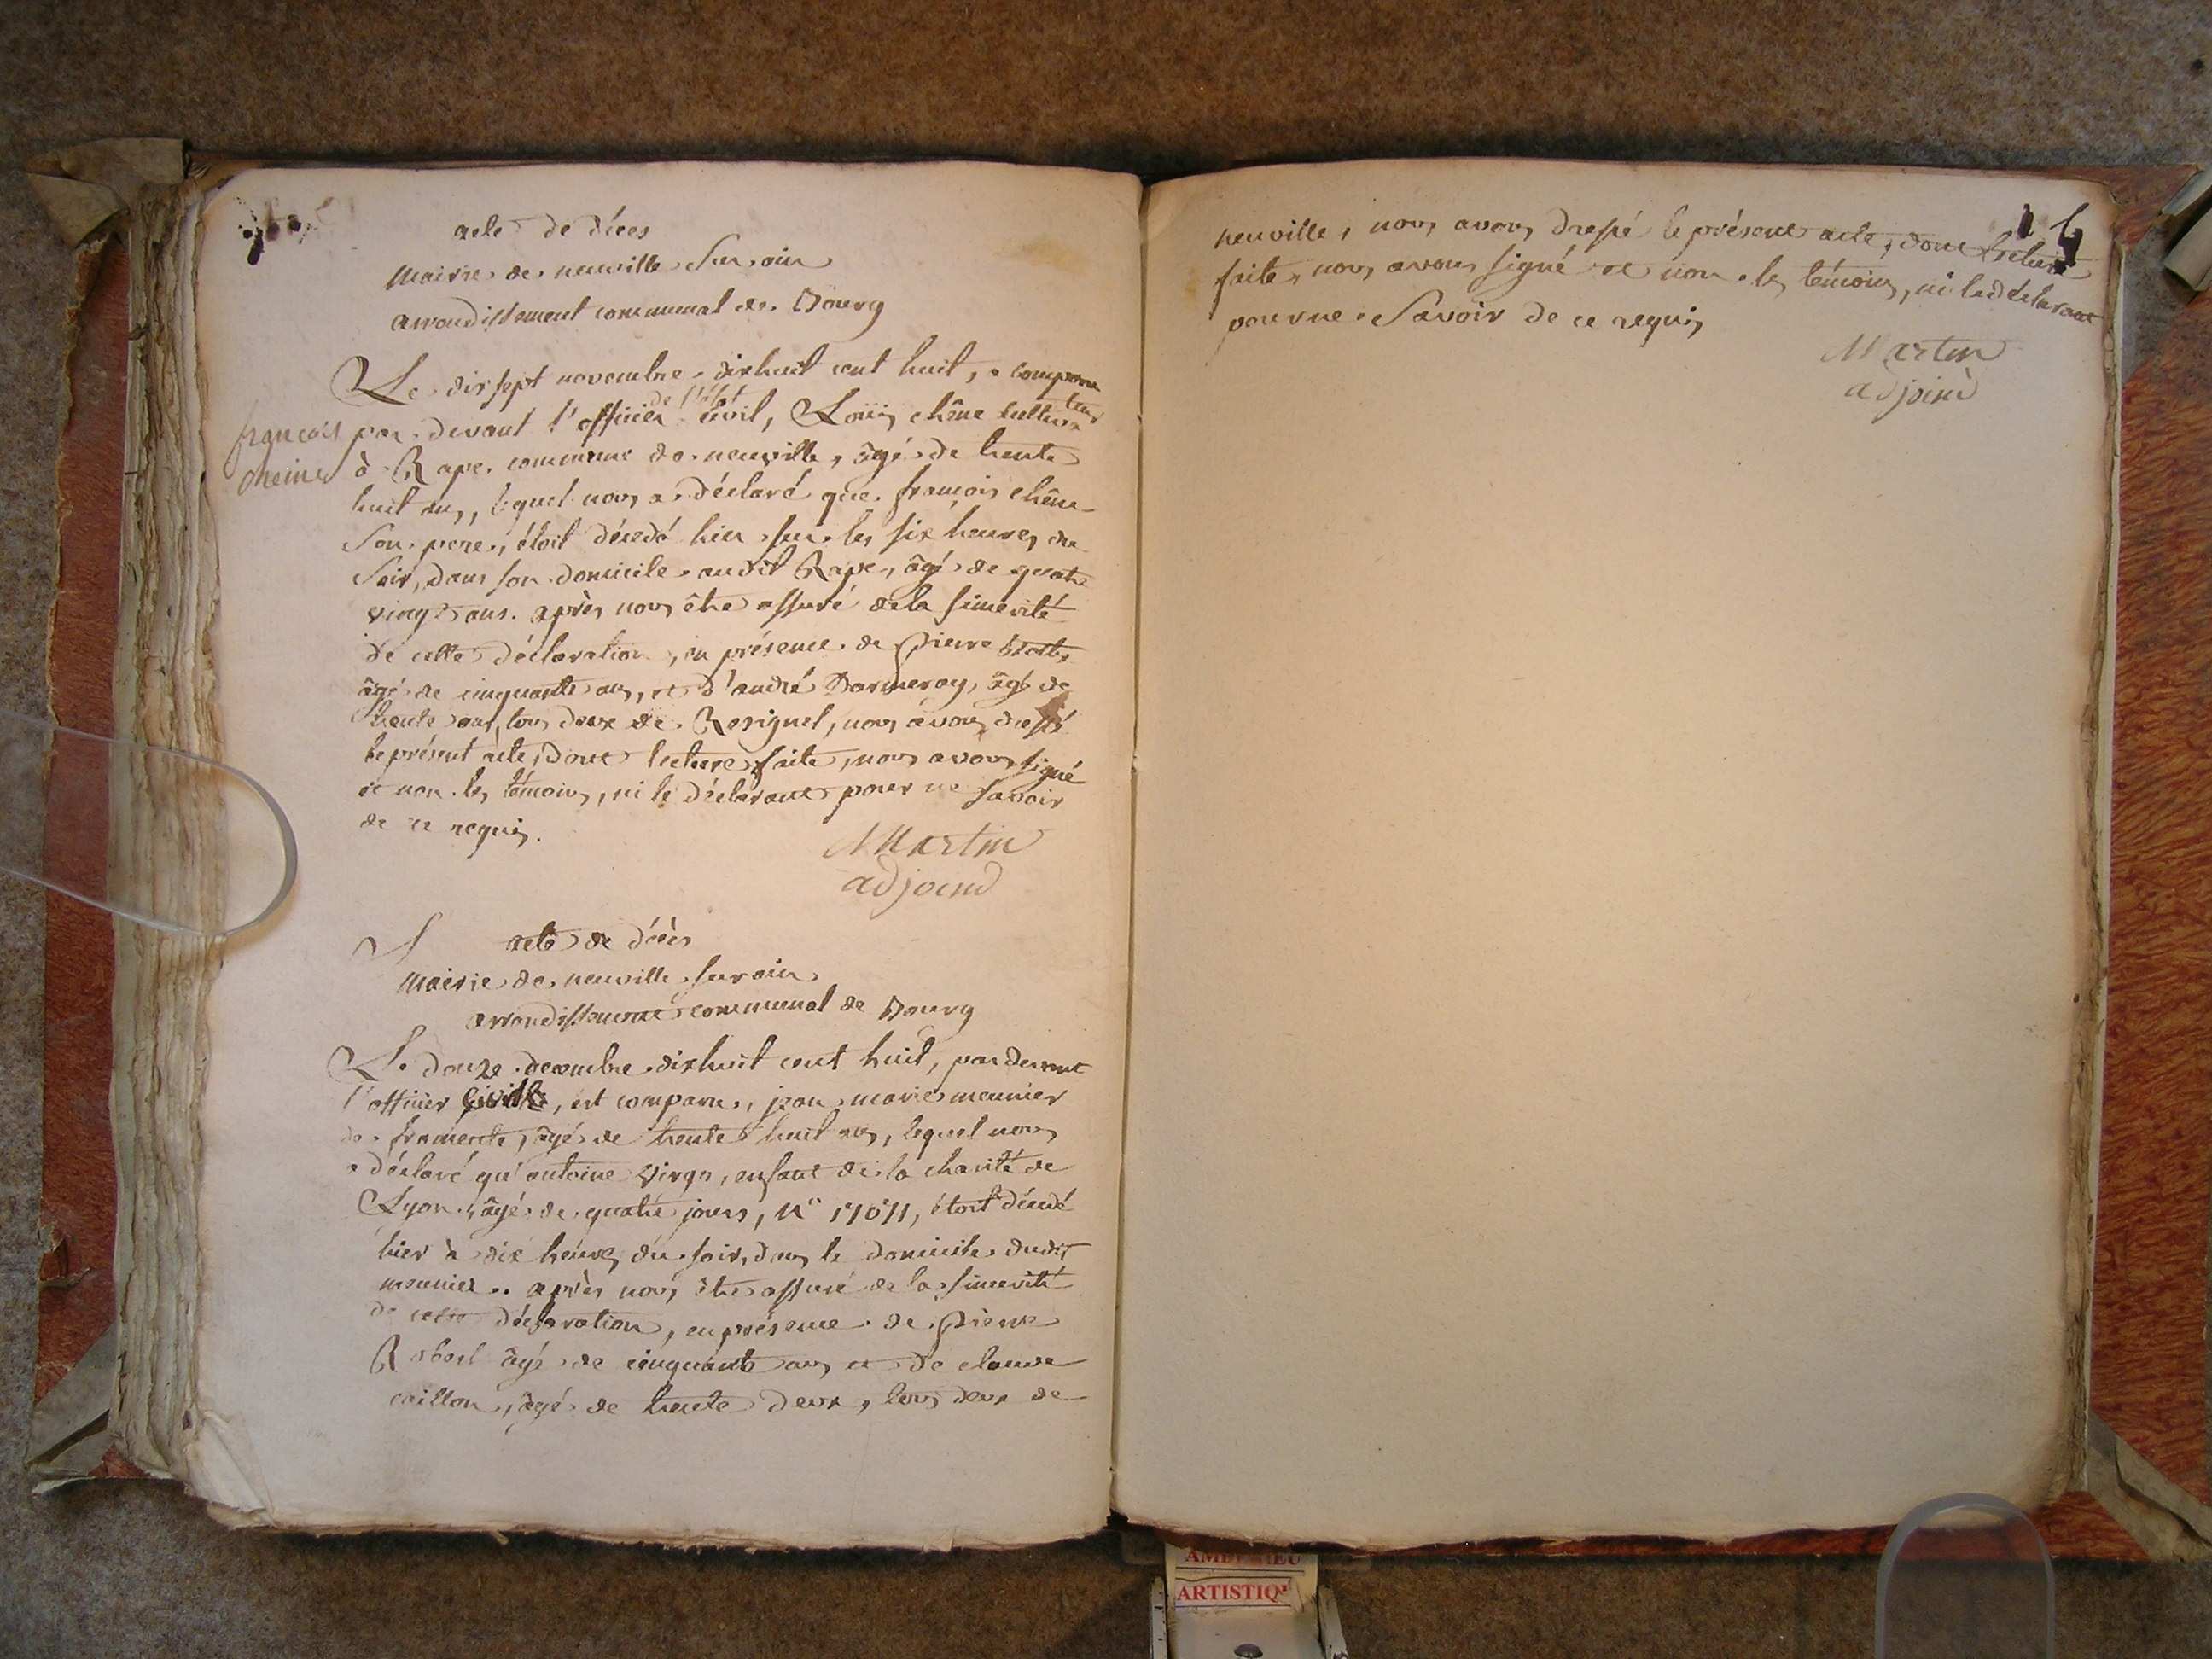 acte de décès
Mairie de neuville Sur ain
arrondissement communal de Bourg
Le dix sept novembre dixhuit cent huit, a comparu
de l'état
par devant l'officier civil, Louis chêne cultivateur
françois
à Rape commune de neuville, âgé de trente
cheine
huit ans, lequel nous a déclaré que françois chêne
Son pere, étoit décedé hier sur les six heures du
Soir, dans son domicile audit Rape, âgé de quatre
vingt ans. après nous être assuré de la sincerité
de cette déclaration, en présence de Pierre
âgé de cinquante ans, et d'andré Darmeray, âgé de
trente ans, tous deux de Resignel, nous avons dressé
le présent acte, dont lecture faite, nous avons signé
et non les témoins, ni le déclarant pour ne savoir
de ce requis.
Martin
adjoind
acte de décès
Mairie de neuville sur ain
arrondissement communal de Bourg
Le douze decembre dixhuit cent huit, par devant
l'officier civil, est comparu, jean marie meunier
de fromente, âgé de trente huit ans, lequel nous
a déclaré qu'antoine Virgn, enfant de la charité de
Lyon, âgé de quatre jours, N° 17071, étoit décedé
hier à dix heures du soir, dans le domicile dudit
meunier. après nous être assuré de la sincerité
de cette déclaration, en présence de Pierre
Robert âgé de cinquante ans et de claude
caillon, âgé de trente deux, tous deux de
neuville, nous avons dressé le présent acte, dont lecture
faite, nous avons signé et non les témoins, ni le déclarant
pour ne Savoir de ce requis
Martin
adjoind
AMBERIEU
ARTISTIQ